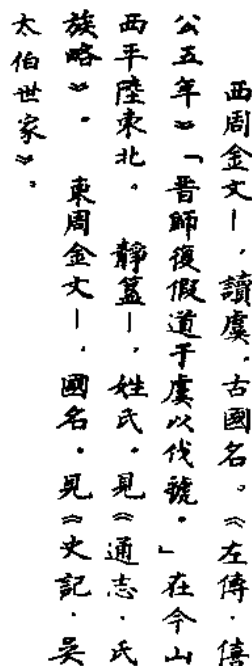 西周金文—，讀虞，古國名。《左傳．僖
公五年》「晋師復假道于虞以伐虢。」在今山
西平陸東北。 靜簋—，姓氏。見《通志．氏
族略》。 東周金文—，國名。見《史記．吴
太伯世家》。